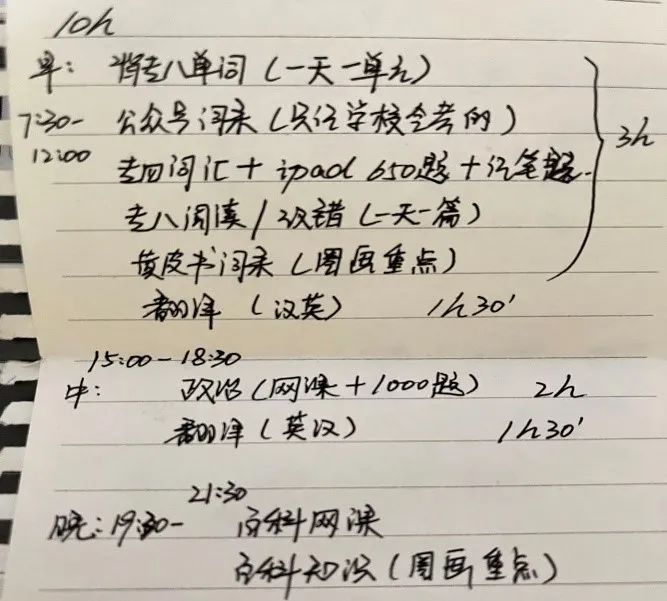 10h
早: 背专八单词(一天一单元)
7:30-12:00 公众号词条(只记学校会考的) 3h
专四词汇+ipad 650题+记笔记
专八阅读/改错(一天一篇)
黄皮书词条(圈画重点)
翻译(汉英) 1h30'
15:00-18:30
中: 政治(网课+1000题) 2h
翻译(英汉) 1h30'
21:30
晚:19:30- 百科网课
百科知识(圈画重点)